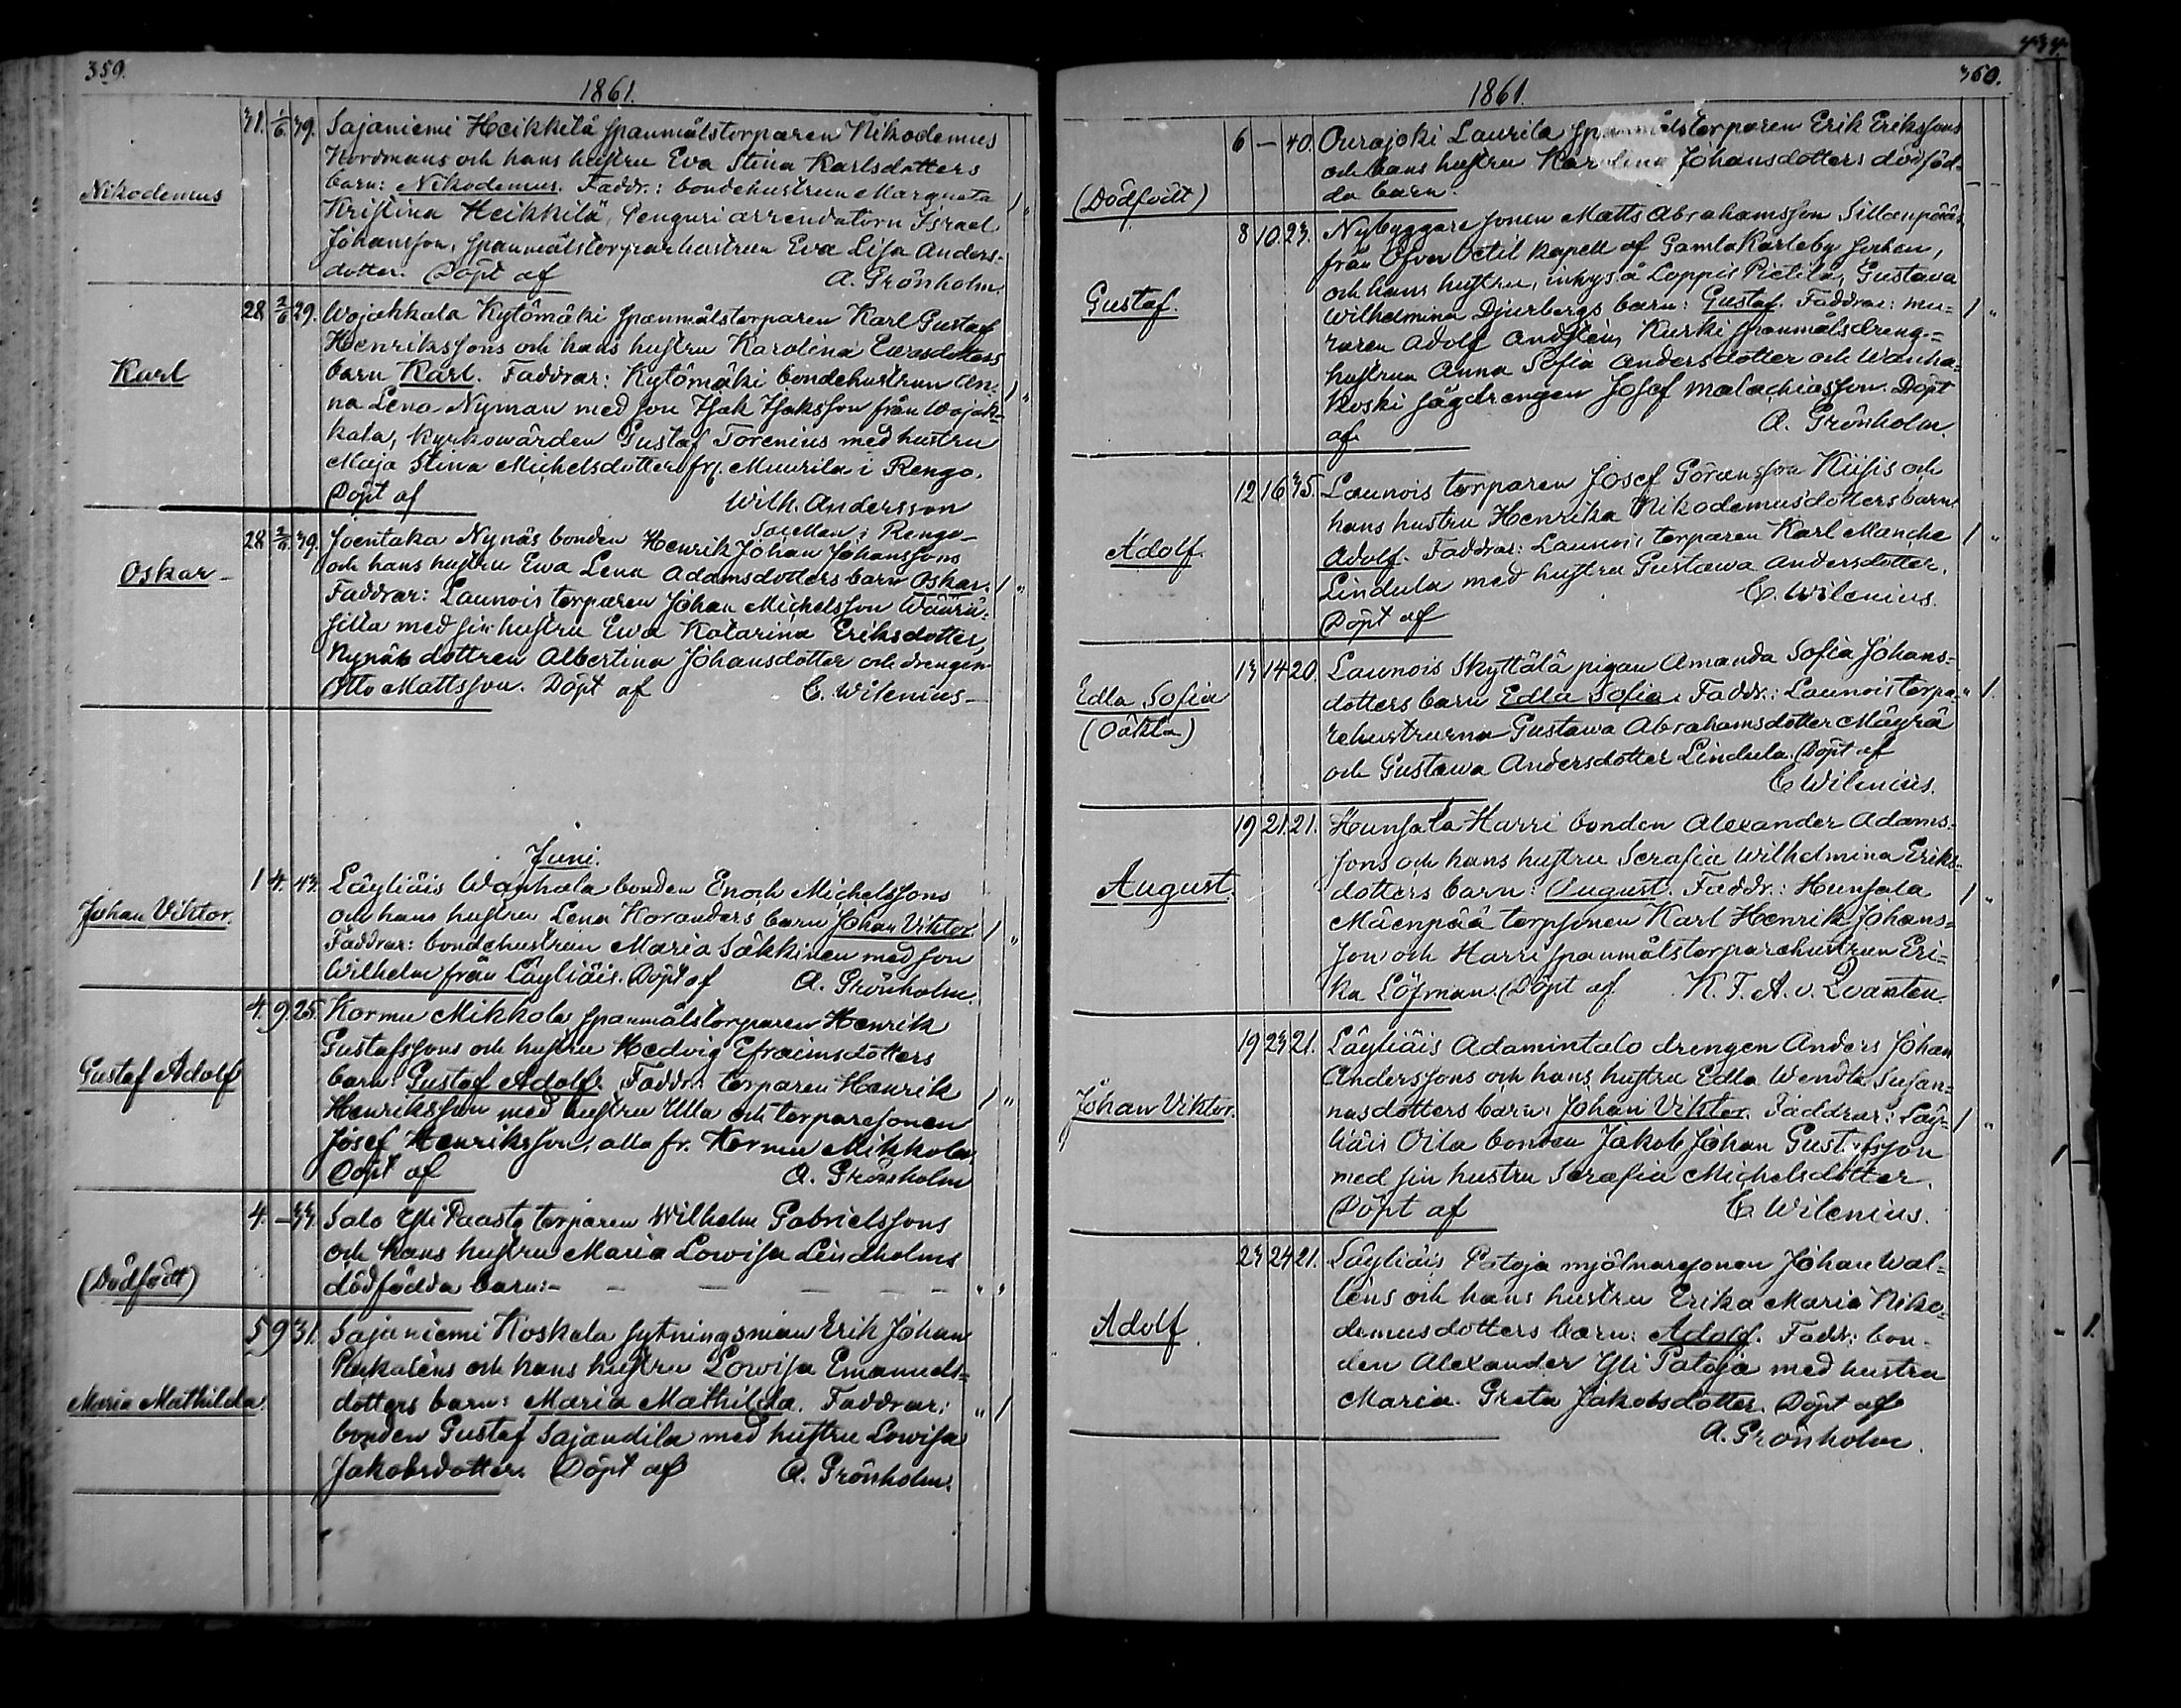 359.
1861.
Nikodemus
31. 1/6. 39. Sajaniemi Heikkilä spanmålstorparen Nikodemus
Nordmans och hans hustru Eva Stina Karlsdotters
barn: Nikodemus. Faddr.: bondehustrun Margreta
Kristina Heikkilä, Penguri arrendatorn Israel 1 "
Johansson, spanmålstorparhustrun Eva Lisa Anders-
dotter. Döpt af A. Grönholm.
Karl
28 2/6 29. Wojakkala Kytömäki spanmålstorparen Karl Gustaf
Henrikssons och hans hustru Karolina Ewasdotters
barn Karl. Faddrar: Kytömäki bondehustrun An- 1 "
na Lena Nyman med son Isak Isaksson från Wojak-
kala, kyrkowärden Gustaf Torenius med hustru
Maja Stina Michelsdotter fr. Muurila i Rengo.
Döpt af Wilh. Andersson
Sacellan i Rengo-
Oskar-
28 2/6. 39. Joentaka Nynäs bonden Henrik Johan Johanssons
och hans hustru Ewa Lena Adamsdotters barn Oskar. 1 "
Faddrar: Launois torparen Johan Michelsson Wäärä-
silla med sin hustru Ewa Katarina Eriksdotter,
Nynäs dottren Albertina Johansdotter och drengen
Otto Mattsson. Döpt af C. Wilenius-
Juni.
Johan Viktor.
1 4. 43. Läyliäis Wanhala bonden Enoch Michelssons
och hans hustru Lena Koranders barn Johan Viktor. 1 "
Faddrar: bondehustrun Maria Säkkinen med son
Wilhelm från Läyliäis. Döpt af A. Grönholm.
Gustaf Adolf
4. 9. 25. Kormu Mikkola spanmålstorparen Henrik
Gustafssons och hustru Hedvig Efraimsdotters
barn: Gustaf Adolf. Faddr.: torparen Henrik
Henriksson med hustru Ulla och torparesonen 1 "
Josef Henriksson, alla fr. Kormu Mikkola.
Döpt af A. Grönholm
(Dödfödt)
4. — 33. Salo Yli Paasto torparen Wilhelm Gabrielssons
och hans hustru Maria Lowisa Lindholms
dödfödda barn:- — — — — — " "
Maria Mathilda.
5 9 31. Sajaniemi Koskela sytningsman Erik Johan
Pukaléns och hans hustru Lowisa Emanuels-
dotters barn: Maria Mathilda. Faddrar: " 1
bonden Gustaf Sajandila med hustru Lowisa
Jakobsdotter. Döpt af A. Grönholm.
434.
360.
1861.
(Dödfödt)
6 — 40. Ourajoki Laurila spanmålstorparen Erik Erikssons
och hans hustru Karolina Johansdotters dödföd-
da barn. — —
Gustaf.
8 10. 23. Nybyggare sonen Matts Abrahamsson Sillanpääs
från Öfver Wetil kapell af Gamlakarleby socken,
och hans hustru, inhys å Loppis Pietilä, Gustava
Wilhelmina Djurbergs barn: Gustaf. Faddrar: mu- 1 "
raren Adolf Andstén, Kurki spanmålsdreng-
hustrun Anna Sofia Andersdotter och Wanha-
koski sågdrengen Josef Malachiasson. Döpt
af A. Grönholm.
Adolf.
12 16 35. Launois torparen Josef Göransson Kiisis och
hans hustru Henrika Nikodemusdotters barn
Adolf. Faddrar: Launois torparen Karl Manche 1 "
Lindula med hustru Gustawa Andersdotter.
Döpt af C. Wilenius.
Edla Sofia
(Oäkta)
13 14 20. Launois Skyttälä pigan Amanda Sofia Johans-
dotters barn Edla Sofia. Faddr.: Launois torpa- " 1.
rehustrurna Gustawa Abrahamsdotter Mäyrä
och Gustawa Andersdotter Lindula. Döpt af
C Wilenius.
August.
19 21. 21. Hunsala Harri bonden Alexander Adams-
sons och hans hustru Serafia Wilhelmina Eriks-
dotters barn: August. Faddr.: Hunsala 1 "
Mäenpää torpsonen Karl Henrik Johans-
son och Harri spanmålstorparehustrun Eri-
ka Löfman. Döpt af K. F. A. v. Qvanten.
Johan Viktor.
19 23 21. Läyliäis Adamintalo drengen Anders Johan
Anderssons och hans hustru Edla Wendla Susan-
nasdotters barn: Johan Viktor. Faddrar: Läy- 1 "
liäis Oila bonden Jakob Johan Gustafsson
med sin hustru Serafia Michelsdotter.
Döpt af C. Wilenius.
Adolf.
23 24 21. Läyliäis Patoja mjölnaresonen Johan Wal-
léns och hans hustru Erika Maria Niko-
demusdotters barn: Adolf. Faddr.: bon-
den Alexander Yli Patoja med hustru
Maria Greta Jakobsdotter. Döpt af
A. Grönholm.